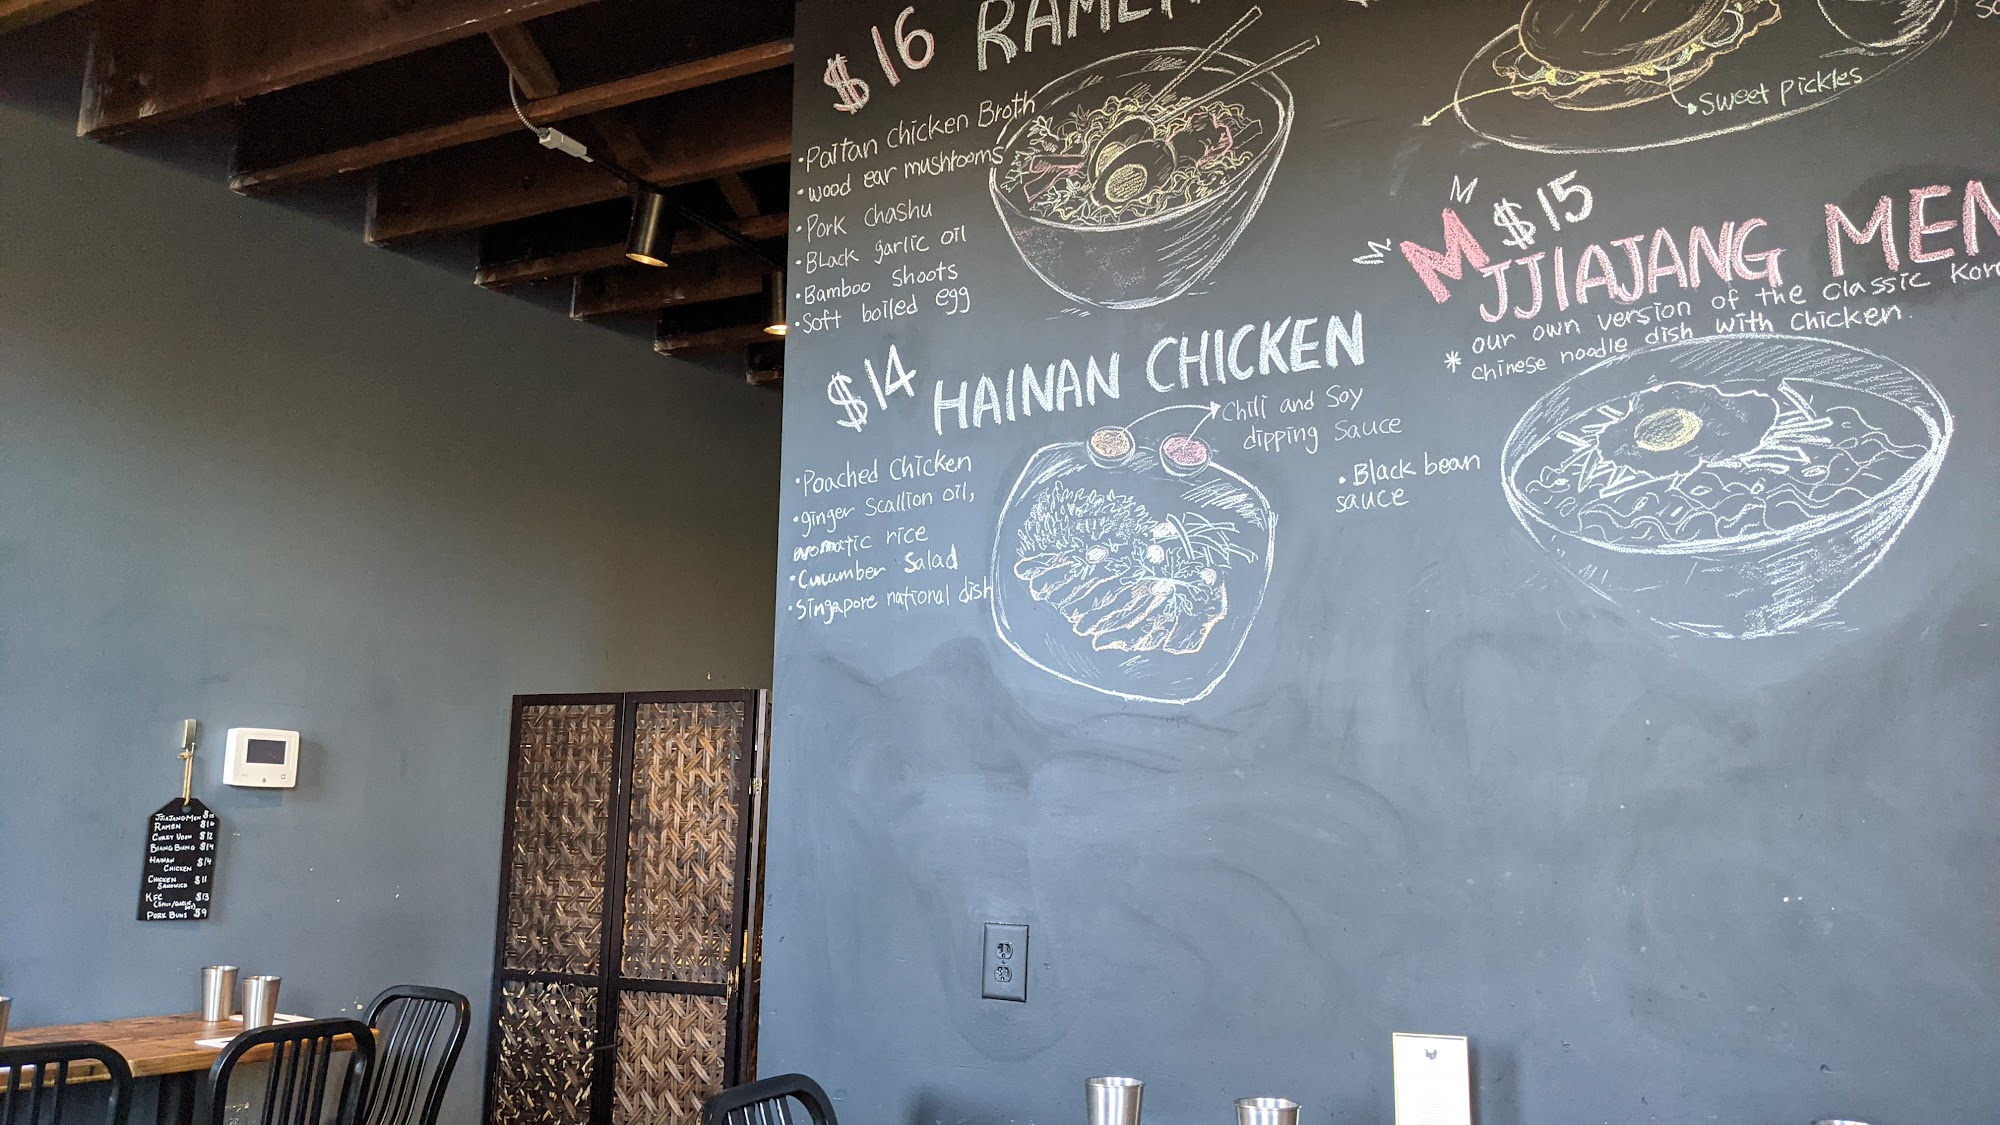 $16 RAMEN
• Paitan Chicken Broth
• wood ear mushrooms
• Pork chashu
• Black garlic oil
• Bamboo shoots
• Soft boiled egg
Sweet pickles
$14 HAINAN CHICKEN
Chili and Soy
dipping sauce
• Poached Chicken
• ginger Scallion oil,
aromatic rice
• Cucumber Salad
• Singapore national dish
$15
JJIAJANG MEN
* our own version of the classic
chinese noodle dish with chicken.
• Black bean
sauce
JJIAJANGMEN $15
RAMEN $16
CURRY UDON $12
BIANG BIANG $14
HAINAN $14
CHICKEN
CHICKEN $11
SANDWICH
KFC $13
PORK BUNS $9